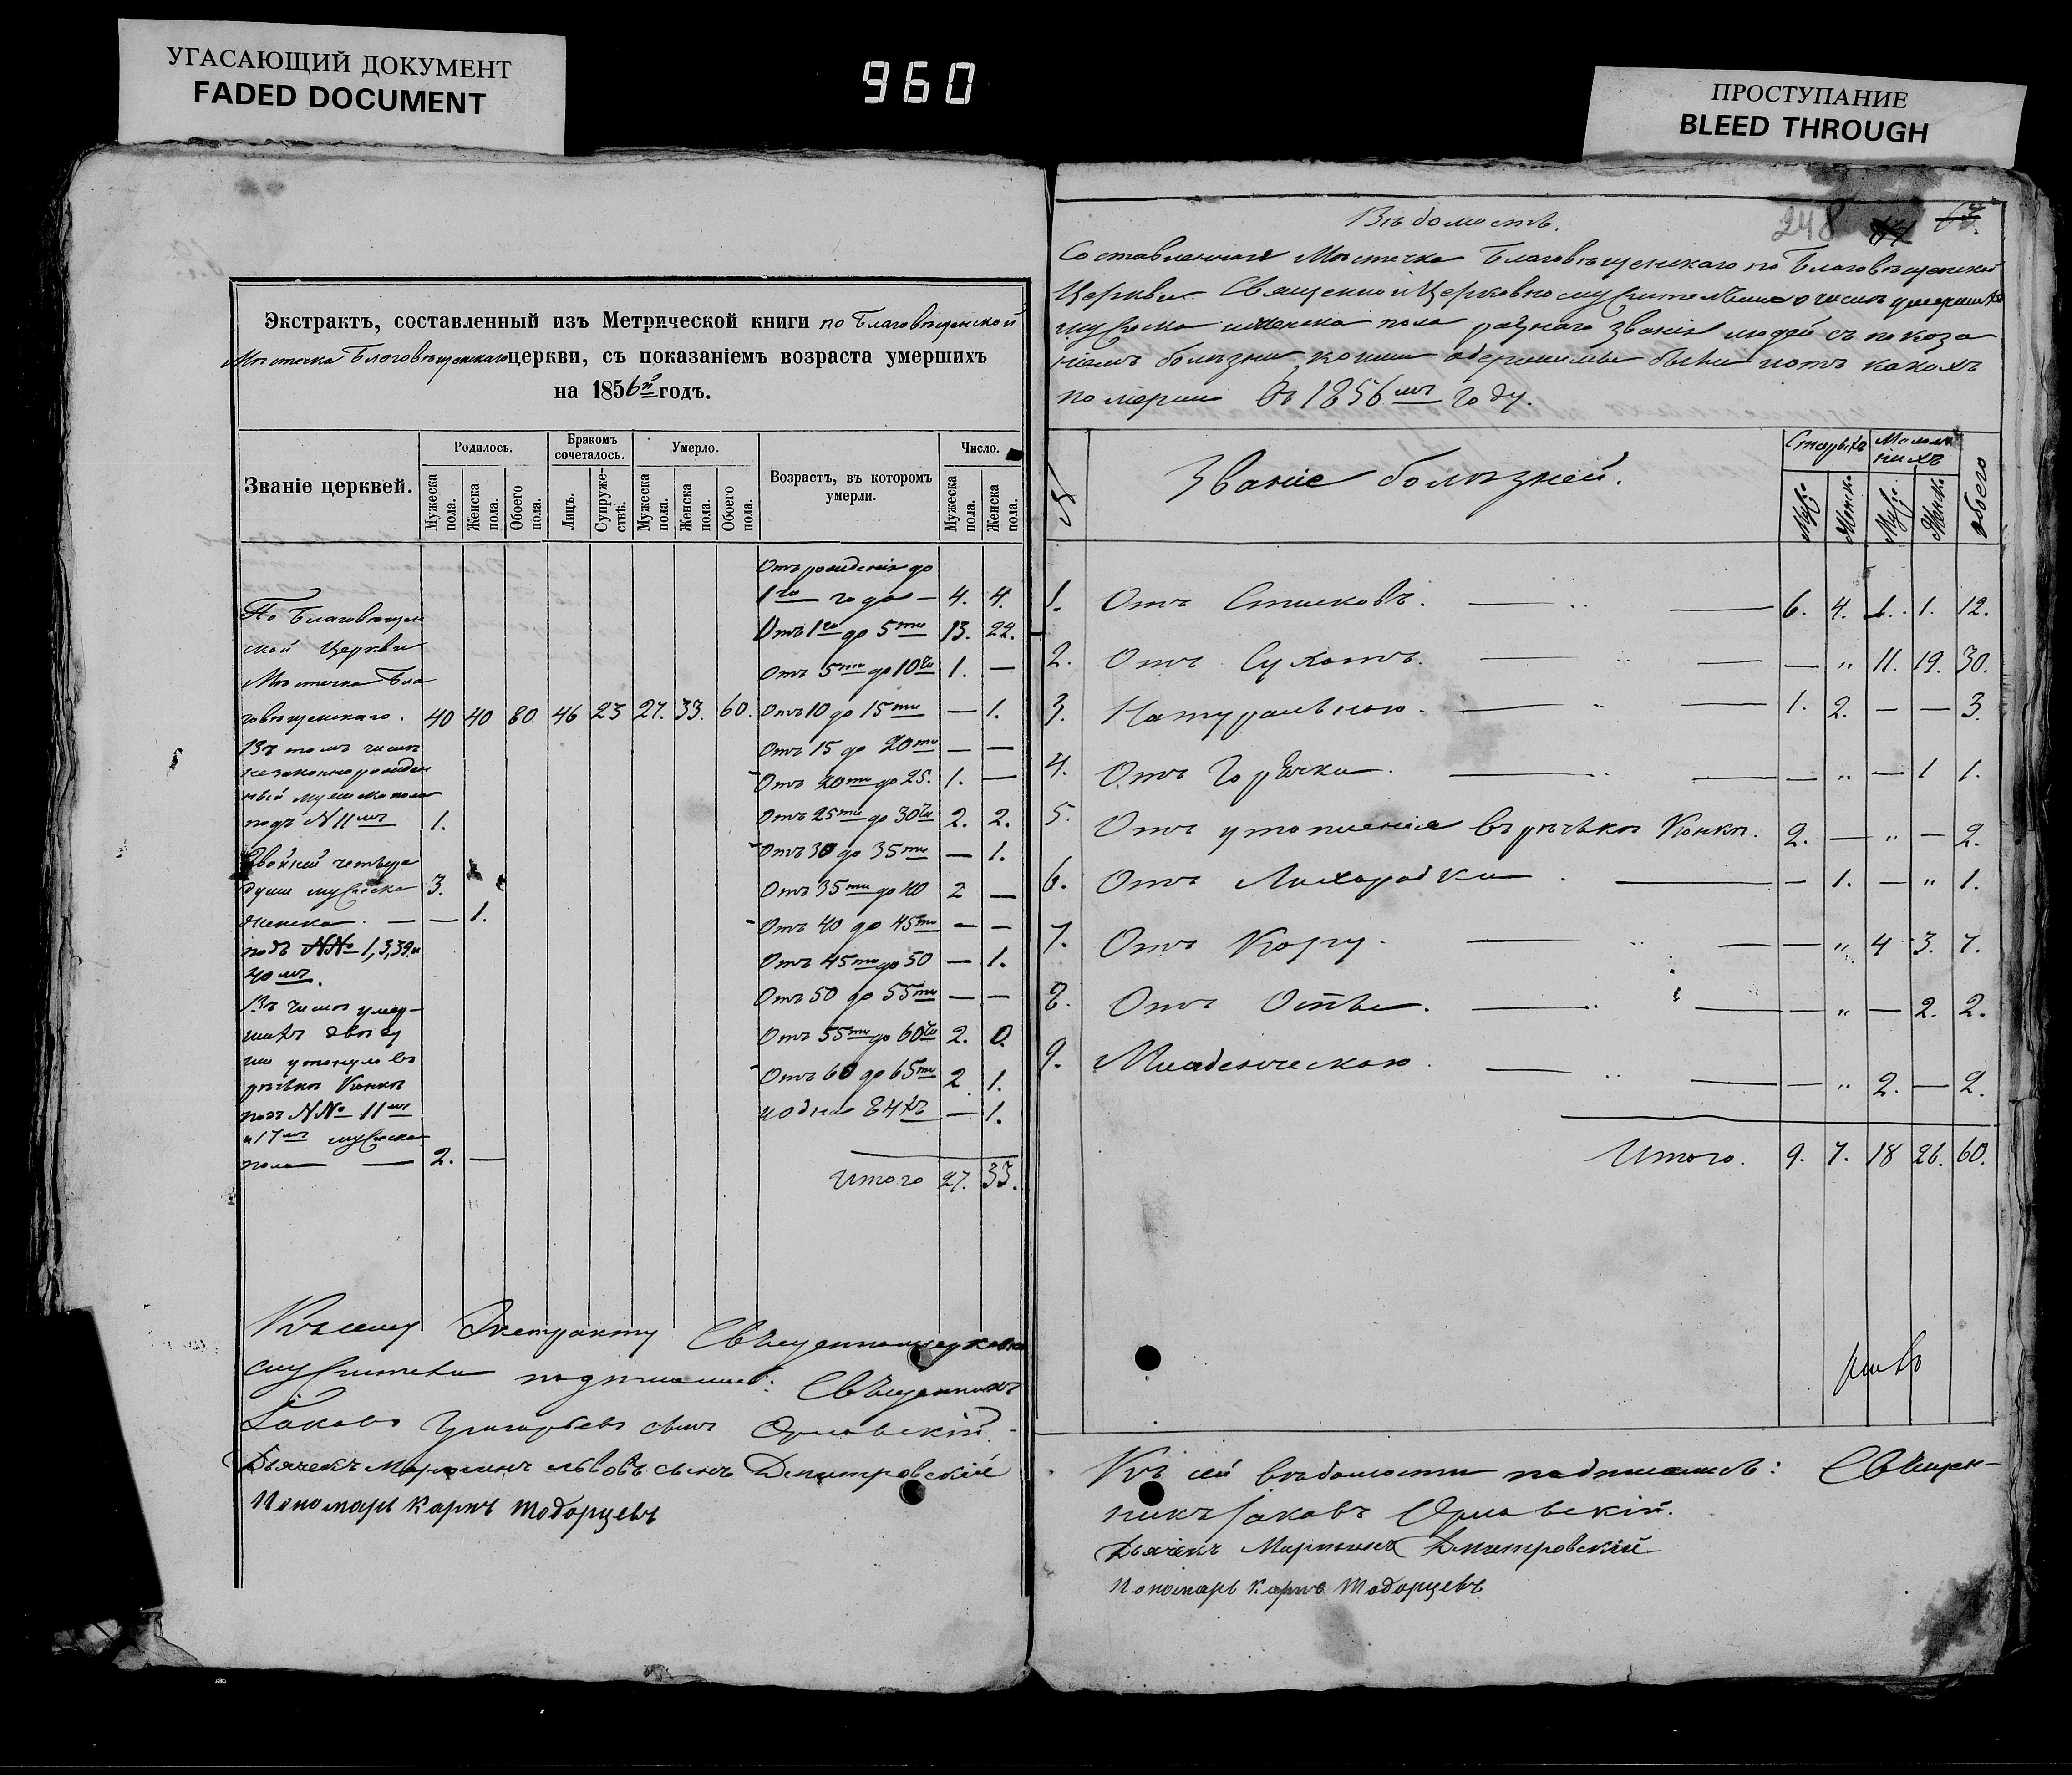 УГАСАЮЩИЙ ДОКУМЕНТ
FADED DOCUMENT
960
ПРОСТУПАНИЕ
BLEED THROUGH
Экстрактъ, составленный изъ Метрической книги по Благовѣщенской
Мѣстечка Благовѣщенскаго церкви, съ показаніемъ возраста умершихъ
на 1856й годъ.
Званіе церквей.
Родилось.
Мужеска пола.
Женска пола.
Обоего пола.
Бракомъ сочеталось.
Лицъ.
Супружествъ.
Умерло.
Мужеска пола.
Женска пола.
Обоего пола.
Возрастъ, въ которомъ умерли.
Число.
Мужеска пола.
Женска пола.
По Благовѣщен
ской Церкви
Мѣстечка Бла
говѣщенскаго. 40 40 80 46 23 27. 33. 60.
Въ томъ числѣ
незаконнорожден
ный мужеска пола
подъ N 11мъ 1.
Двойней четыре
души мужеска 3.
женска — — 1.
подъ NNo 1, 3, 39 и
40мъ.
Въ числѣ умер-
шихъ двѣ ду
ши утонуло въ
рѣчькѣ Конкѣ
подъ NNo 11мъ
и 17мъ мужеска
пола — 2. —
Отъ рожденія до
1го года — 4. 4.
Отъ 1го до 5ти 13. 22.
Отъ 5ти до 10ти 1. —
Отъ 10 до 15ти — 1.
Отъ 15 до 20ти — —
Отъ 20ти до 25. 1. —
Отъ 25ти до 30ти 2. 2.
Отъ 30 до 35ти — 1.
Отъ 35ти до 40 2 —
Отъ 40 до 45ти — —
Отъ 45ти до 50 — 1.
Отъ 50 до 55ти — —
Отъ 55ти до 60ти 2. 0.
Отъ 60 до 65ти 2 1.
и одна 84хъ — 1.
Итого 27. 33.
Къ сему Экстракту Священноцерковно
служители подписались: Священникъ
Іаковъ Григорьевъ сынъ Орловскій.
Дьячекъ Мартинъ Львовъ сынъ Димитровскій
Пономарь Карпъ Тодорцевъ
248 67.
Вѣдомость.
Составленная Мѣстечка Благовѣщенскаго по Благовѣщенской
Церкви Священно и Церковнослужителями о числѣ умершихъ
мужеска и женска пола разнаго званія людей съ показа
ніемъ болѣзни, коими одержимы были и отъ какихъ
померли въ 1856мъ году.
№
Званіе болѣзней.
Старыхъ
Малолѣтнихъ
Муж.
Женск.
Муж.
Женск.
Обоего
1. Отъ Стисковъ. — „ — 6. 4. 1. 1. 12.
2. Отъ Сухотъ. — „ — — „ 11. 19. 30.
3. Натуральною. — „ — 1. 2. — — 3.
4. Отъ Горячки. — „ — — „ — 1 1.
5. Отъ утопленія въ рѣчькѣ Конкѣ. 2. — „ — 2.
6. Отъ Лихорадки. — — 1. — „ 1.
7. Отъ Кору. — „ — — „ 4 3. 7.
8. Отъ Оспы. — „ — — „ — 2. 2.
9. Младенческою. — „ — — „ 2. — 2.
Итого. 9. 7. 18 26. 60.
Къ сей вѣдомости подписались: Священ-
никъ Іаковъ Орловскій.
Дьячекъ Мартинъ Дмитровскій
Пономарь Карпъ Тодорцевъ